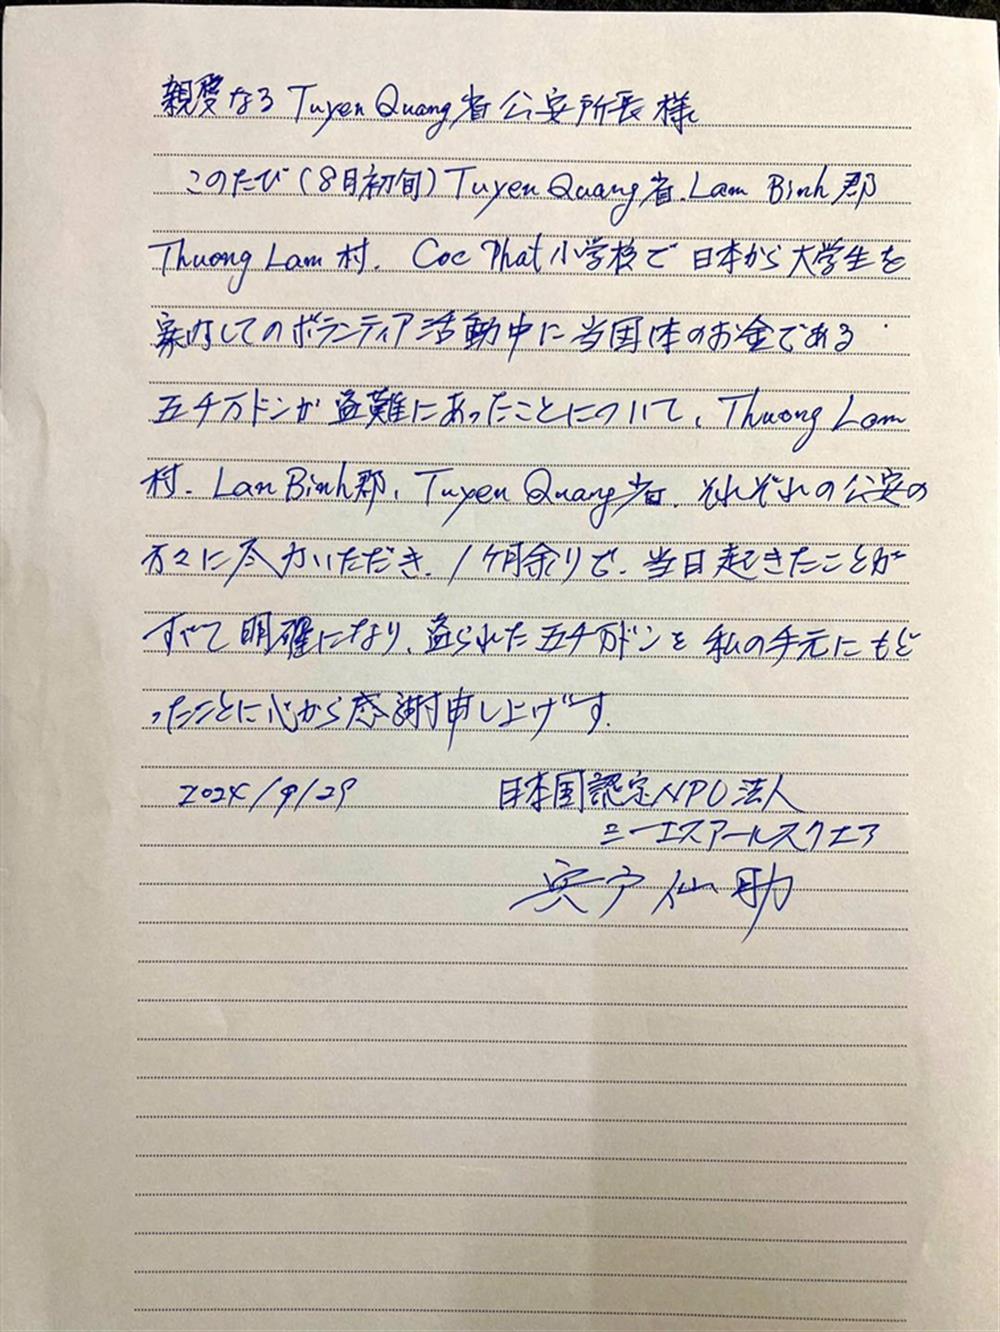 親愛なるTuyen Quang省公安所長様
このたび(8月初旬)Tuyen Quang省、Lam Binh郡
Thuong Lam村、Coc Phat小学校で日本から大学生を
案内してのボランティア活動中に当団体のお金である
五千万ドンが盗難にあったことについて、Thuong Lam
村、Lan Binh郡、Tuyen Quang省、それぞれの公安の
方々に尽力いただき、1ヶ月余りで、当日起きたことが
すべて明確になり、盗られた五千万ドンを私の手元にもど
ったことに心から感謝申し上げます。
2024/9/29 日本国認定NPO法人
シーエスアールスクエア
宍戸仙助